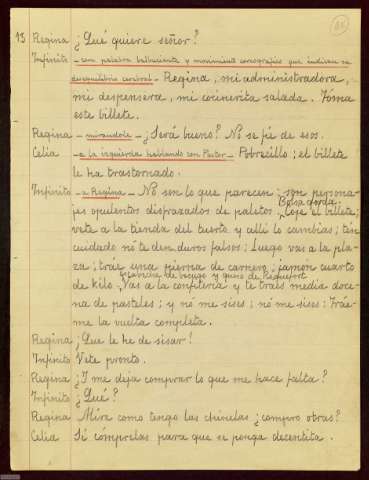 13 Regina ¿Qué quiere señor?
Infinito - con palabra balbuciente y movimientos coreográfico que indican su
desequilibrio cerebral - Regina, mi administradora,
mi despensera, mi cocinerita salada. Toma
este billete.
Regina - mirandole - ¿Será bueno? No se fie de esos.
Celia - a la izquierda hablando con Pastor - Pobrecillo; el billete
le ha trastornado.
Infinito - a Regina - No son lo que parecen; son persona-
jes opulentos disfrazados de paletos. Bolsa gorda. Coge el billete;
vete a la tienda del tuerto y allí lo cambias; ten
cuidado no te den duros falsos; Luego vas a la pla-
za; tráe una pierna de carnero; jamón cuarto
de kilo, y queso de Roquefort
Vas a la confitería y te traes media doce-
na de pasteles; y no me sises; no me sises: Tráe-
me la vuelta completa.
Regina ¿Que le he de sisar?
Infinito Vete pronto.
Regina ¿Y me deja comprar lo que me hace falta?
Infinito ¿Qué?
Regina Mire como tengo las chinelas ¿compro otras?
Celia Sí cómprelas para que se ponga decentita.